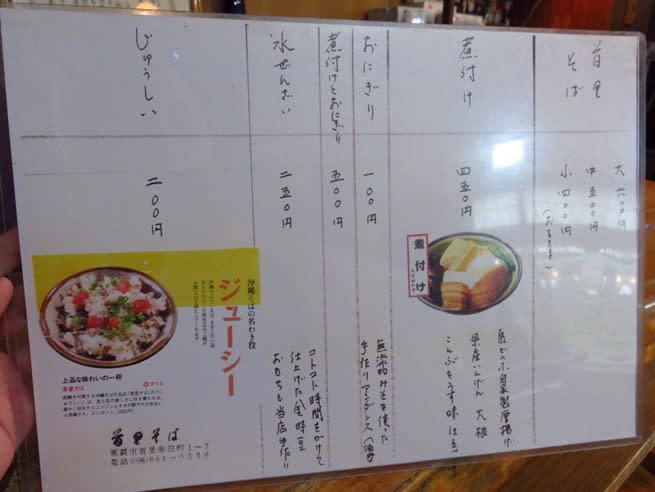 首里
そば
大 六〇〇円
中 五〇〇円
小 四〇〇円
煮付け
四五〇円
煮付け
島どうふ自家製厚揚げ
県産いんげん 大根
こんぶをうす味
おにぎり
一〇〇円
無添加みそを使った
手作りアンダンス
煮付けとおにぎり
五〇〇円
氷ぜんざい
二五〇円
コトコト時間をかけて
仕上げた金時豆
おもちも当店手作り
じゅうしい
二〇〇円
沖縄そばの名わき役
ジューシー
上品な味わいの一杯
首里そば
首里そば
那覇市首里赤田町1-7
電話(098)884-0556